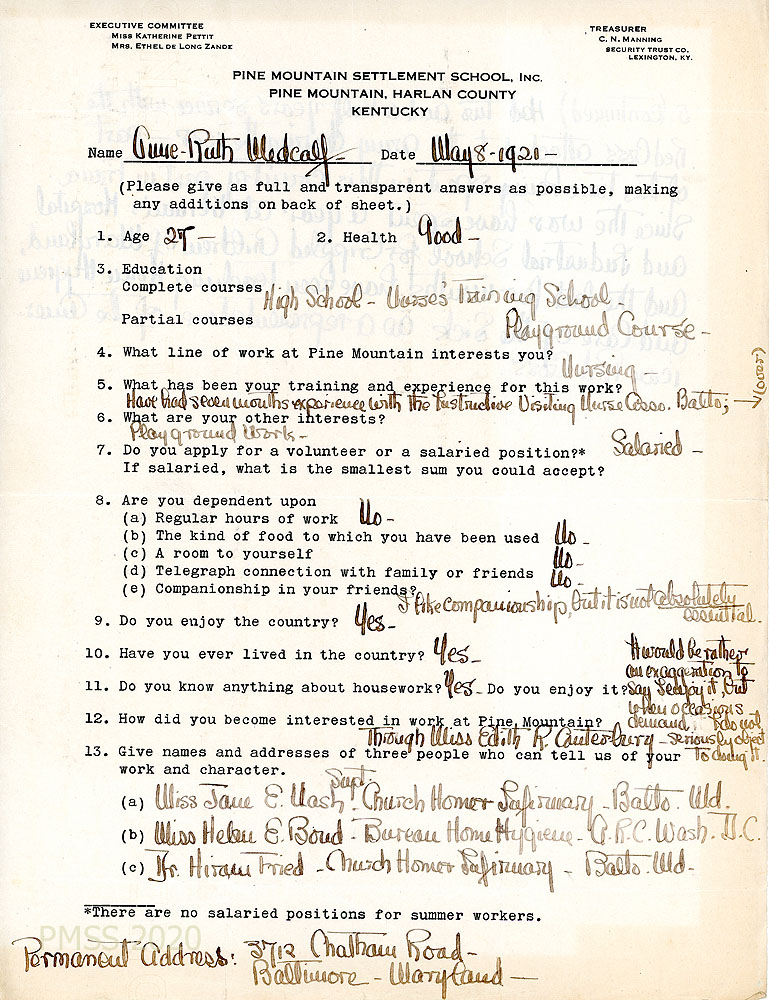 EXECUTIVE COMMITTEE
MISS KATHERINE PETTIT
MRS. ETHEL DE LONG ZANDE
TREASURER
C. N. MANNING
SECURITY TRUST CO.
LEXINGTON, KY.
PINE MOUNTAIN SETTLEMENT SCHOOL, INC.
PINE MOUNTAIN, HARLAN COUNTY
KENTUCKY
Name Anne-Ruth Medcalf- Date May 8-1921-
(Please give as full and transparent answers as possible, making
any additions on back of sheet.)
1. Age 25- 2. Health Good-
3. Education
Complete courses High School - Nurse's Training School-
Partial courses Playground Course-
4. What line of work at Pine Mountain interests you? Nursing-
5. What has been your training and experience for this work?
Have had seven months experience with the Instructive Visiting Nurse Asso. Balto; (over)
6. What are your other interests?
Playground Work-
7. Do you apply for a volunteer or a salaried position?* Salaried-
If salaried, what is the smallest sum you could accept?
8. Are you dependent upon
(a) Regular hours of work No-
(b) The kind of food to which you have been used No-
(c) A room to yourself No-
(d) Telegraph connection with family or friends No-
(e) Companionship in your friends? I like companionship, but it is not absolutely
essential.
9. Do you enjoy the country? Yes-
10. Have you ever lived in the country? Yes-
11. Do you know anything about housework? Yes- Do you enjoy it? It would be rather
an exaggeration to
say I enjoy it, but
when occasions
demand, I do not
seriously object
to doing it.
12. How did you become interested in work at Pine Mountain?
Through Miss Edith R. Canterbury-
13. Give names and addresses of three people who can tell us of your
work and character.
(a) Miss Jane E. Nash Supt. Church Home & Infirmary - Balto. Md.
(b) Miss Helen E. Bond - Bureau Home Hygiene - A.R.C. Wash. D.C.
(c) Dr. Hiram Fried - Church Home & Infirmary - Balto. Md-
*There are no salaried positions for summer workers.
PMSS 2020
Permanent Address: 3712 Chatham Road-
Baltimore - Maryland-